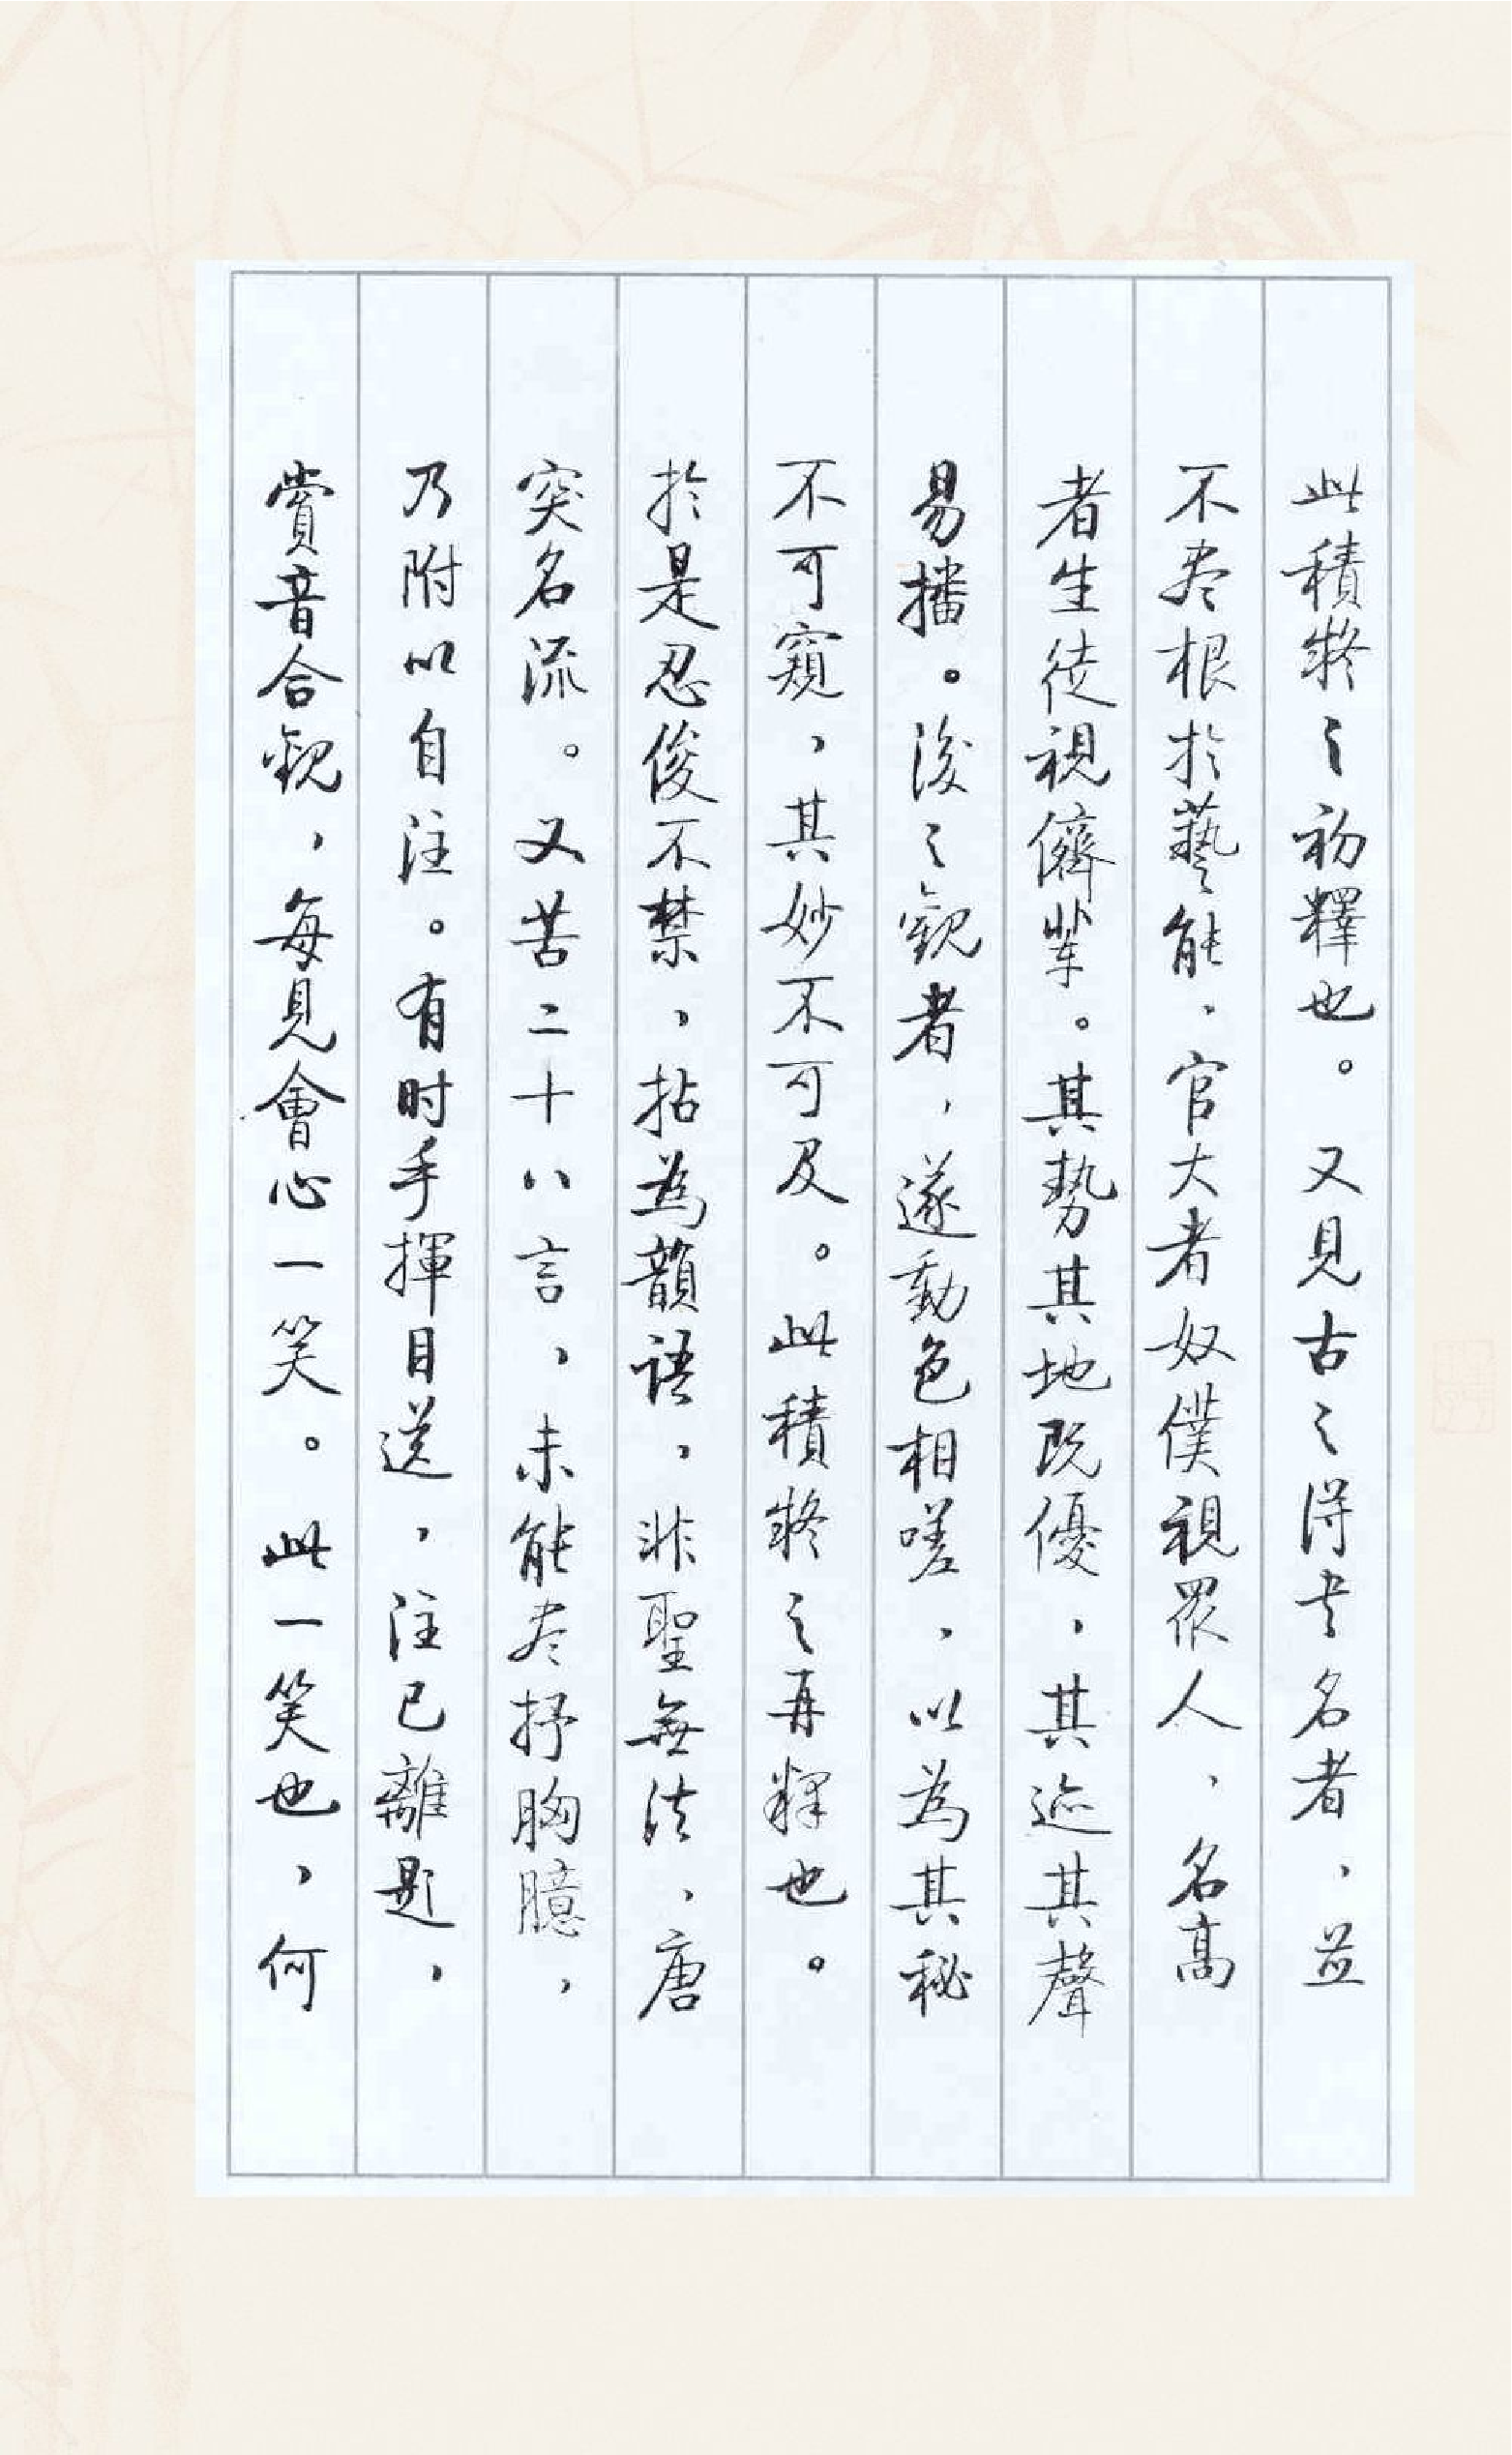 此積疑之初釋也。又見古之得書名者，並
不尽根於藝能，官大者奴僕視眾人，名高
者生徒視儕輩。其勢其地既優，其迹其聲
易播。後之觀者，遂動色相嗟，以為其秘
不可窺，其妙不可及。此積疑之再釋也。
於是忍俊不禁，拈為韻語，非聖無法，唐
突名流。又苦二十八言，未能尽抒胸臆，
乃附以自注。有时手揮目送，注已離題，
賞音合觀，每見會心一笑。此一笑也，何